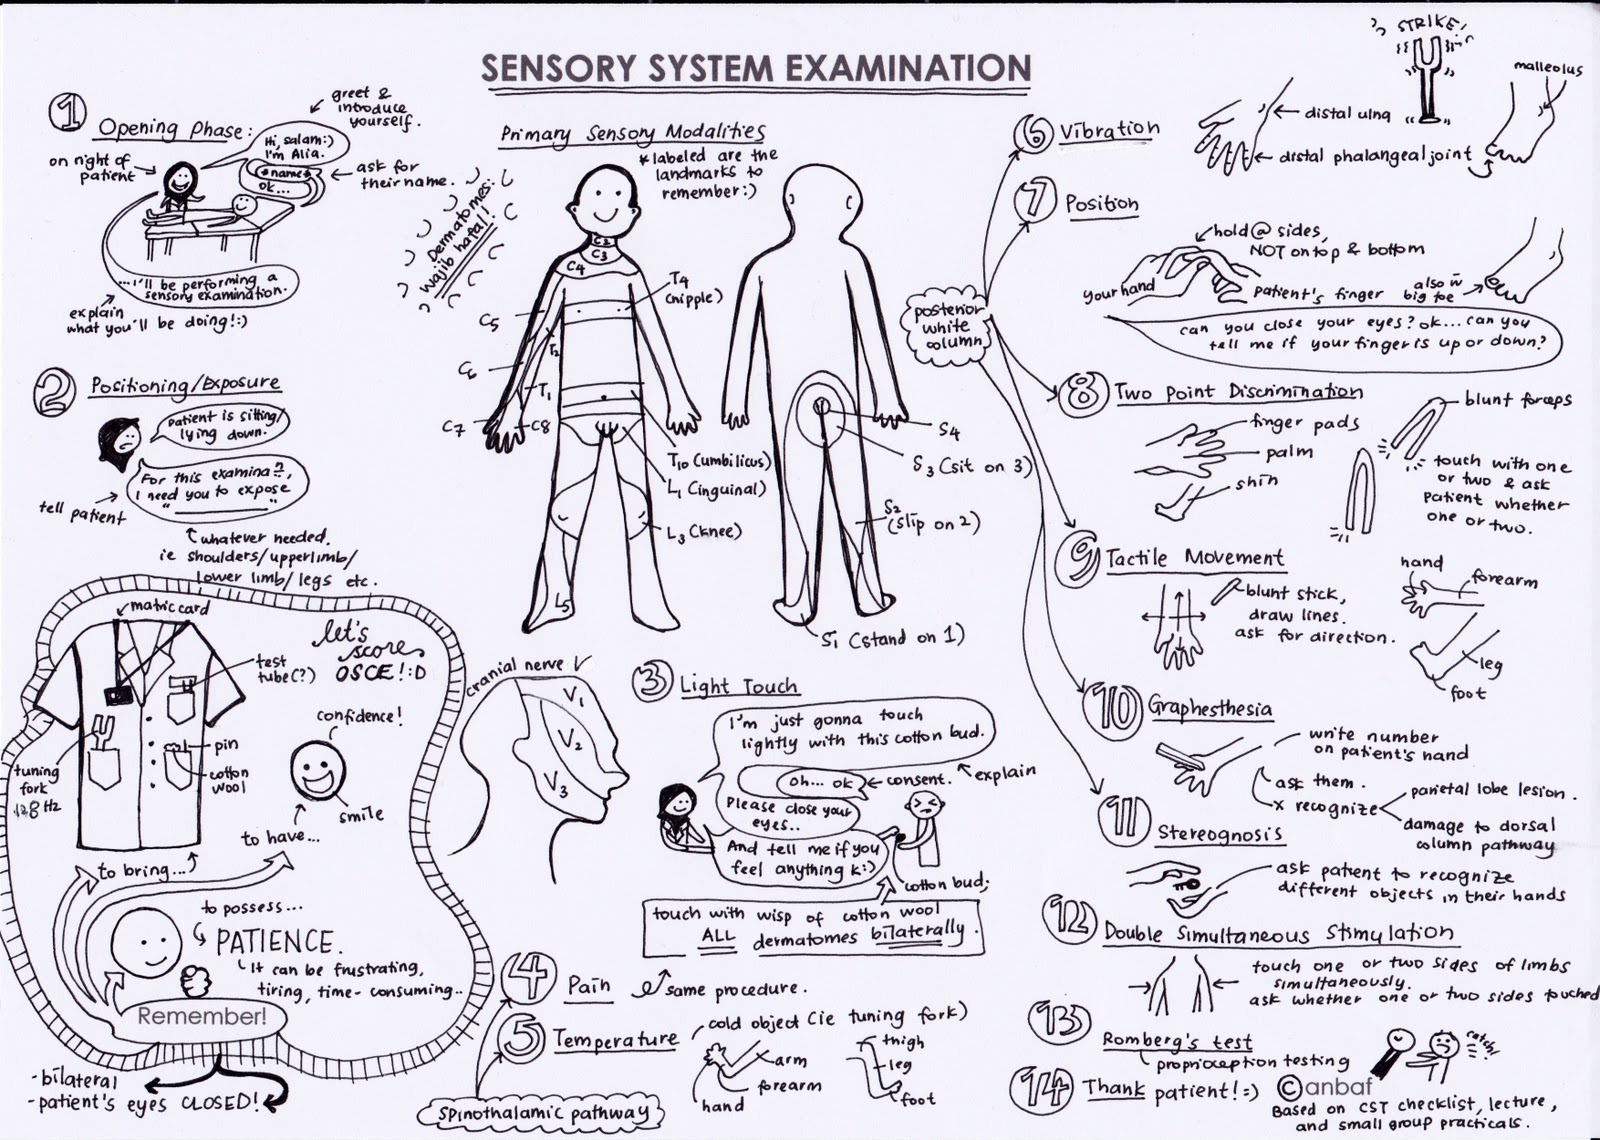 SENSORY SYSTEM EXAMINATION
1 Opening Phase:
greet &
introduce
yourself.
Hi, salam:)
I'm Alia.
*name*
ok...
ask for
their name.
on night of
patient
...I'll be performing a
sensory examination.
explain
what you'll be doing!:)
2 Positioning/Exposure
Patient is sitting/
lying down.
For this examinaⁿ,
I need you to expose
"__________"
tell patient
whatever needed.
ie shoulders/upperlimb/
lower limb/legs etc.
matric card
let's
score
OSCE!:D
test
tube(?)
confidence!
pin
cotton
wool
tuning
fork
128 Hz
smile
to have...
to bring...
to possess...
PATIENCE.
It can be frustrating,
tiring, time-consuming..
Remember!
-bilateral
-patient's eyes CLOSED!
Primary Sensory Modalities
*labeled are the
landmarks to
remember:)
Dermatomes:
wajib hafal!
C2
C3
C4
T4
(nipple)
C5
T2
C6
T1
C7
C8
T10 (umbilicus)
L1 (inguinal)
L3 (knee)
L5
S4
S3 (sit on 3)
S2
(slip on 2)
S1 (stand on 1)
cranial nerve V
V1
V2
V3
3 Light Touch
I'm just gonna touch
lightly with this cotton bud.
oh... ok
consent.
explain
Please close your
eyes..
And tell me if you
feel anything k:)
cotton bud;
touch with wisp of cotton wool
ALL dermatomes bilaterally.
4 Pain
same procedure.
5 Temperature
cold object (ie tuning fork)
arm
forearm
hand
thigh
leg
foot
spinothalamic pathway
posterior
white
column
6 Vibration
STRIKE!
malleolus
distal ulna
distal phalangeal joint
7 Position
hold @ sides,
NOT on top & bottom
your hand
patient's finger
also w̄
big toe
can you close your eyes? ok... can you
tell me if your finger is up or down?
8 Two Point Discrimination
blunt forceps
finger pads
palm
shin
touch with one
or two & ask
patient whether
one or two.
9 Tactile Movement
blunt stick,
draw lines.
ask for direction.
hand
forearm
leg
foot
10 Graphesthesia
write number
on patient's hand
ask them.
x recognize
parietal lobe lesion.
damage to dorsal
column pathway
11 Stereognosis
ask patient to recognize
different objects in their hands
12 Double Simultaneous Stimulation
touch one or two sides of limbs
simultaneously.
ask whether one or two sides touched
13 Romberg's test
proprioception testing
catch!
14 Thank patient!=)
©anbaf
Based on CST checklist, lecture,
and small group practicals.